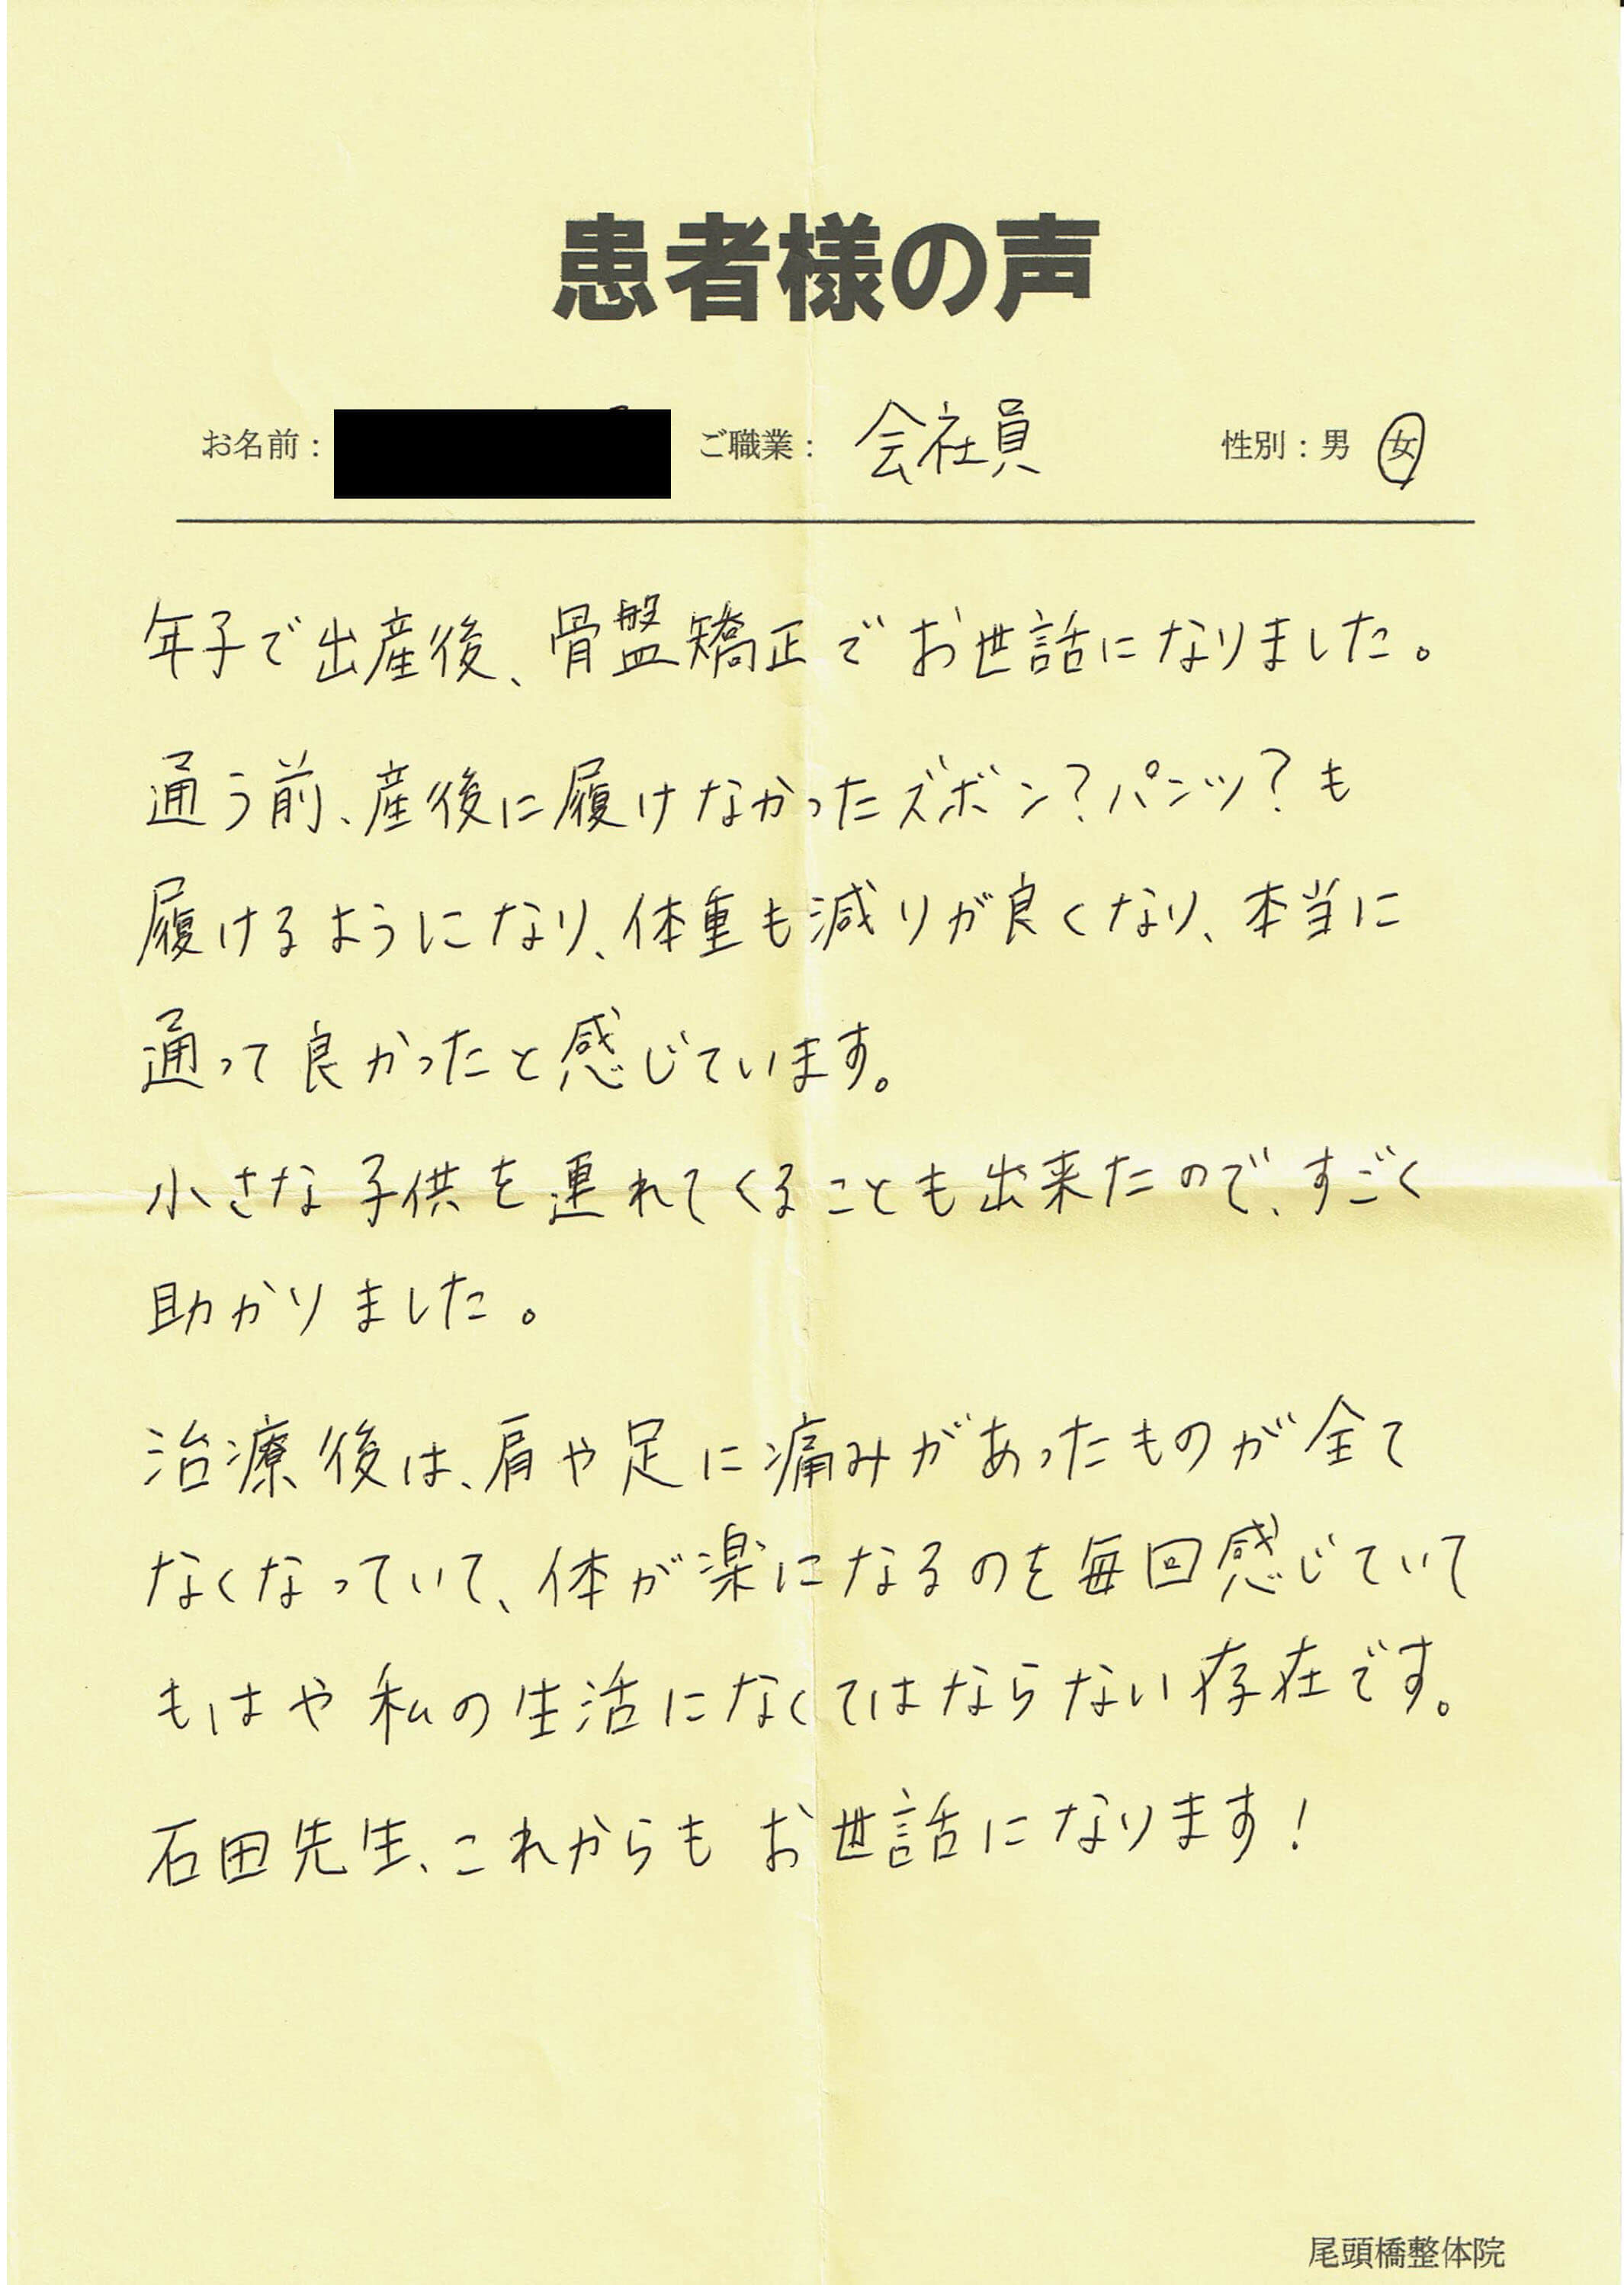 患者様の声
お名前： ご職業： 会社員 性別：男 女
年子で出産後、骨盤矯正でお世話になりました。
通う前、産後に履けなかったズボン？パンツ？も
履けるようになり、体重も減りが良くなり、本当に
通って良かったと感じています。
小さな子供を連れてくることも出来たので、すごく
助かりました。
治療後は、肩や足に痛みがあったものが全て
なくなっていて、体が楽になるのを毎回感じていて
もはや私の生活になくてはならない存在です。
石田先生、これからもお世話になります！
尾頭橋整体院